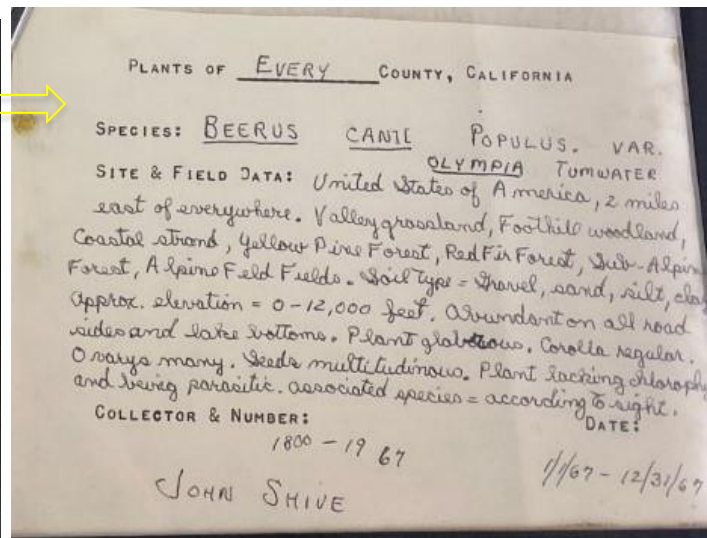 PLANTS OF EVERY COUNTY, CALIFORNIA
SPECIES: BEERUS CANII POPULUS. VAR.
OLYMPIA TUMWATER
SITE & FIELD DATA: United States of America, 2 miles
east of everywhere. Valley grassland, Foothill woodland,
Coastal strand, Yellow Pine Forest, Red Fir Forest, Sub-Alpin
Forest, Alpine Feld Fields. Soil Type = Gravel, sand, silt, clay
Approx. elevation = 0-12,000 feet. Abundant on all road
sides and lake bottoms. Plant glabrous. Corolla regular.
Ovarys many. Seeds multitudinous. Plant lacking chlorophy
and being parasitic. associated species = according to sight.
COLLECTOR & NUMBER:
DATE:
1800-1967
1/1/67 - 12/31/67
JOHN SHIVE